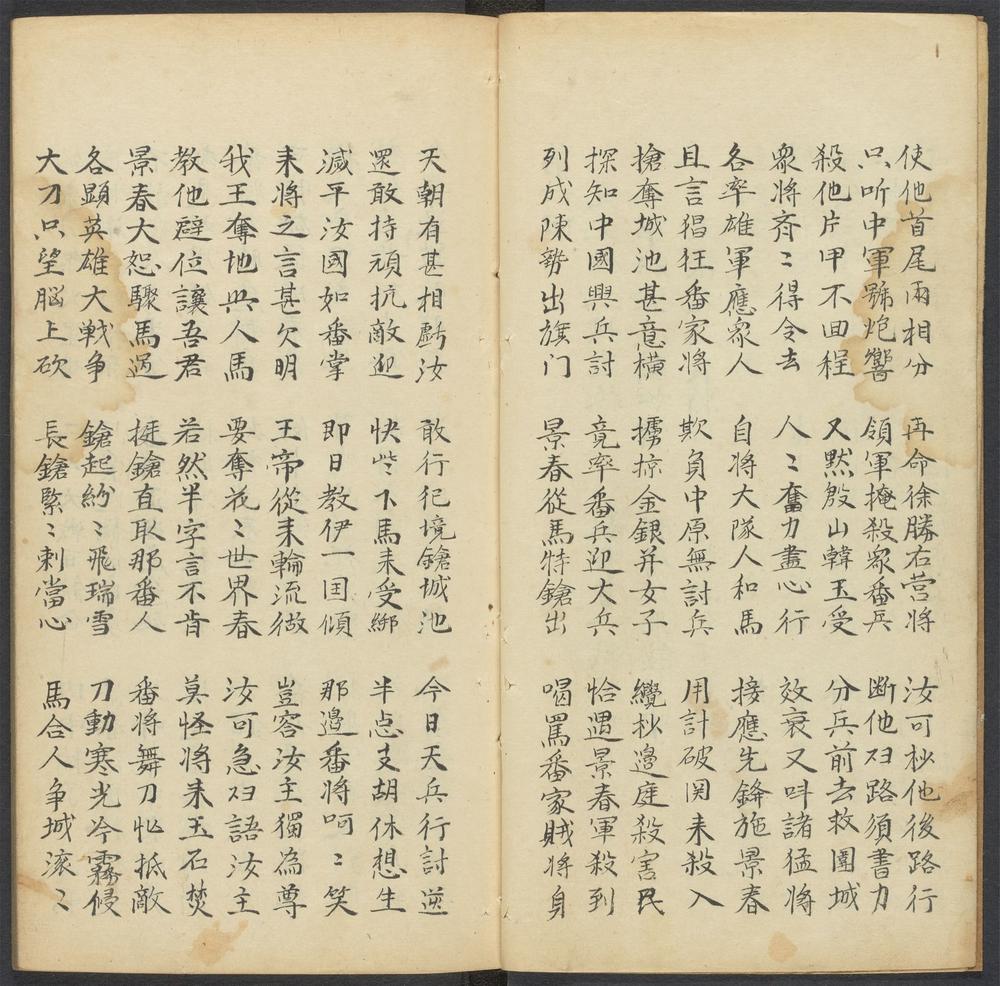 使他首尾両相分 再命徐勝右营将 汝可杪他後路行
只听中軍號炮響 領軍掩殺眾番兵 断他归路須書力
殺他片甲不囬程 又黙殷山韓玉受 分兵前去救圍城
眾将齐〻得令去 人〻奮力盡心行 效衰又呌諸猛将
各率雄軍應眾人 自将大隊人和馬 接應先鋒施景春
且言猖狂番家将 欺負中原無討兵 用計破関来殺入
搶奪城池甚竜横 擄掠金銀并女子 纔杪邉庭殺害民
探知中國興兵討 竟率番兵迎大兵 恰遇景春軍殺到
列成陳勢出旗门 景春從馬特鎗出 喝罵番家賊将身
天朝有甚相虧汝 敢行犯境鎗城池 今日天兵行討逆
還敢持頑抗敵迎 快些下馬来受綁 半点支胡休想生
滅平汝國如番掌 即日教伊一囯傾 那邉番将呵〻笑
来将之言甚欠明 王帝從来輪流做 豈容汝主獨為尊
我王奪地與人馬 要奪花〻世界春 汝可急归語汝主
教他避位讓吾君 若然半字言不肯 莫怪将来玉石焚
景春大恕驟馬過 挺鎗直取那番人 番将舞刀忙抵敵
各顕英雄大戦争 鎗起紛〻飛瑞雪 刀動寒光冷霧侵
大刀只望脳上砍 長鎗緊〻刺當心 馬合人争城滚〻